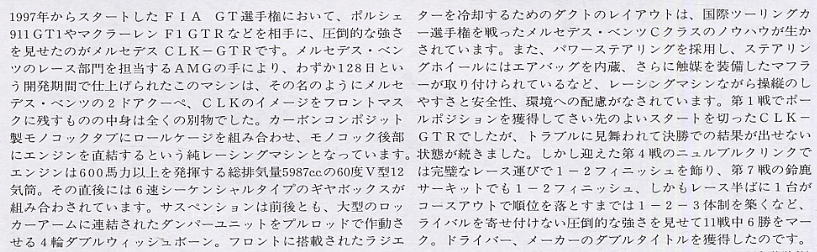 1997年からスタートしたＦＩＡ　ＧＴ選手権において、ポルシェ
911ＧＴ1やマクラーレン　Ｆ1ＧＴＲなどを相手に、圧倒的な強さ
を見せたのがメルセデス ＣＬＫ−ＧＴＲです。メルセデス・ベン
ツのレース部門を担当するＡＭＧの手により、わずか128日とい
う開発期間で仕上げられたこのマシンは、その名のようにメルセ
デス・ベンツの２ドアクーペ、ＣＬＫのイメージをフロントマス
クに残すものの中身は全くの別物でした。カーボンコンポジット
製モノコックタブにロールケージを組み合わせ、モノコック後部
にエンジンを直結するという純レーシングマシンとなっています。
エンジンは600馬力以上を発揮する総排気量5987cc.の60度Ｖ型12
気筒。その直後には６速シーケンシャルタイプのギヤボックスが
組み合わされています。サスペンションは前後とも、大型のロッ
カーアームに連結されたダンパーユニットをプルロッドで作動さ
せる４輪ダブルウィッシュボーン。フロントに搭載されたラジエ
ターを冷却するためのダクトのレイアウトは、国際ツーリングカ
ー選手権を戦ったメルセデス・ベンツＣクラスのノウハウが生か
されています。また、パワーステアリングを採用し、ステアリン
グホイールにはエアバッグを内蔵、さらに触媒を装備したマフラ
ーが取り付けられているなど、レーシングマシンながら操縦のし
やすさと安全性、環境への配慮がなされています。第１戦でポー
ルポジションを獲得してさい先のよいスタートを切ったＣＬＫ−
ＧＴＲでしたが、トラブルに見舞われて決勝での結果が出せない
状態が続きました。しかし迎えた第４戦のニュルブルクリンクで
は完璧なレース運びで１−２フィニッシュを飾り、第７戦の鈴鹿
サーキットでも１−２フィニッシュ、しかもレース半ばに１台が
コースアウトで順位を落とすまでは１−２−３体制を築くなど、
ライバルを寄せ付けない圧倒的な強さを見せて11戦中６勝をマー
ク。ドライバー、メーカーのダブルタイトルを獲得したのです。